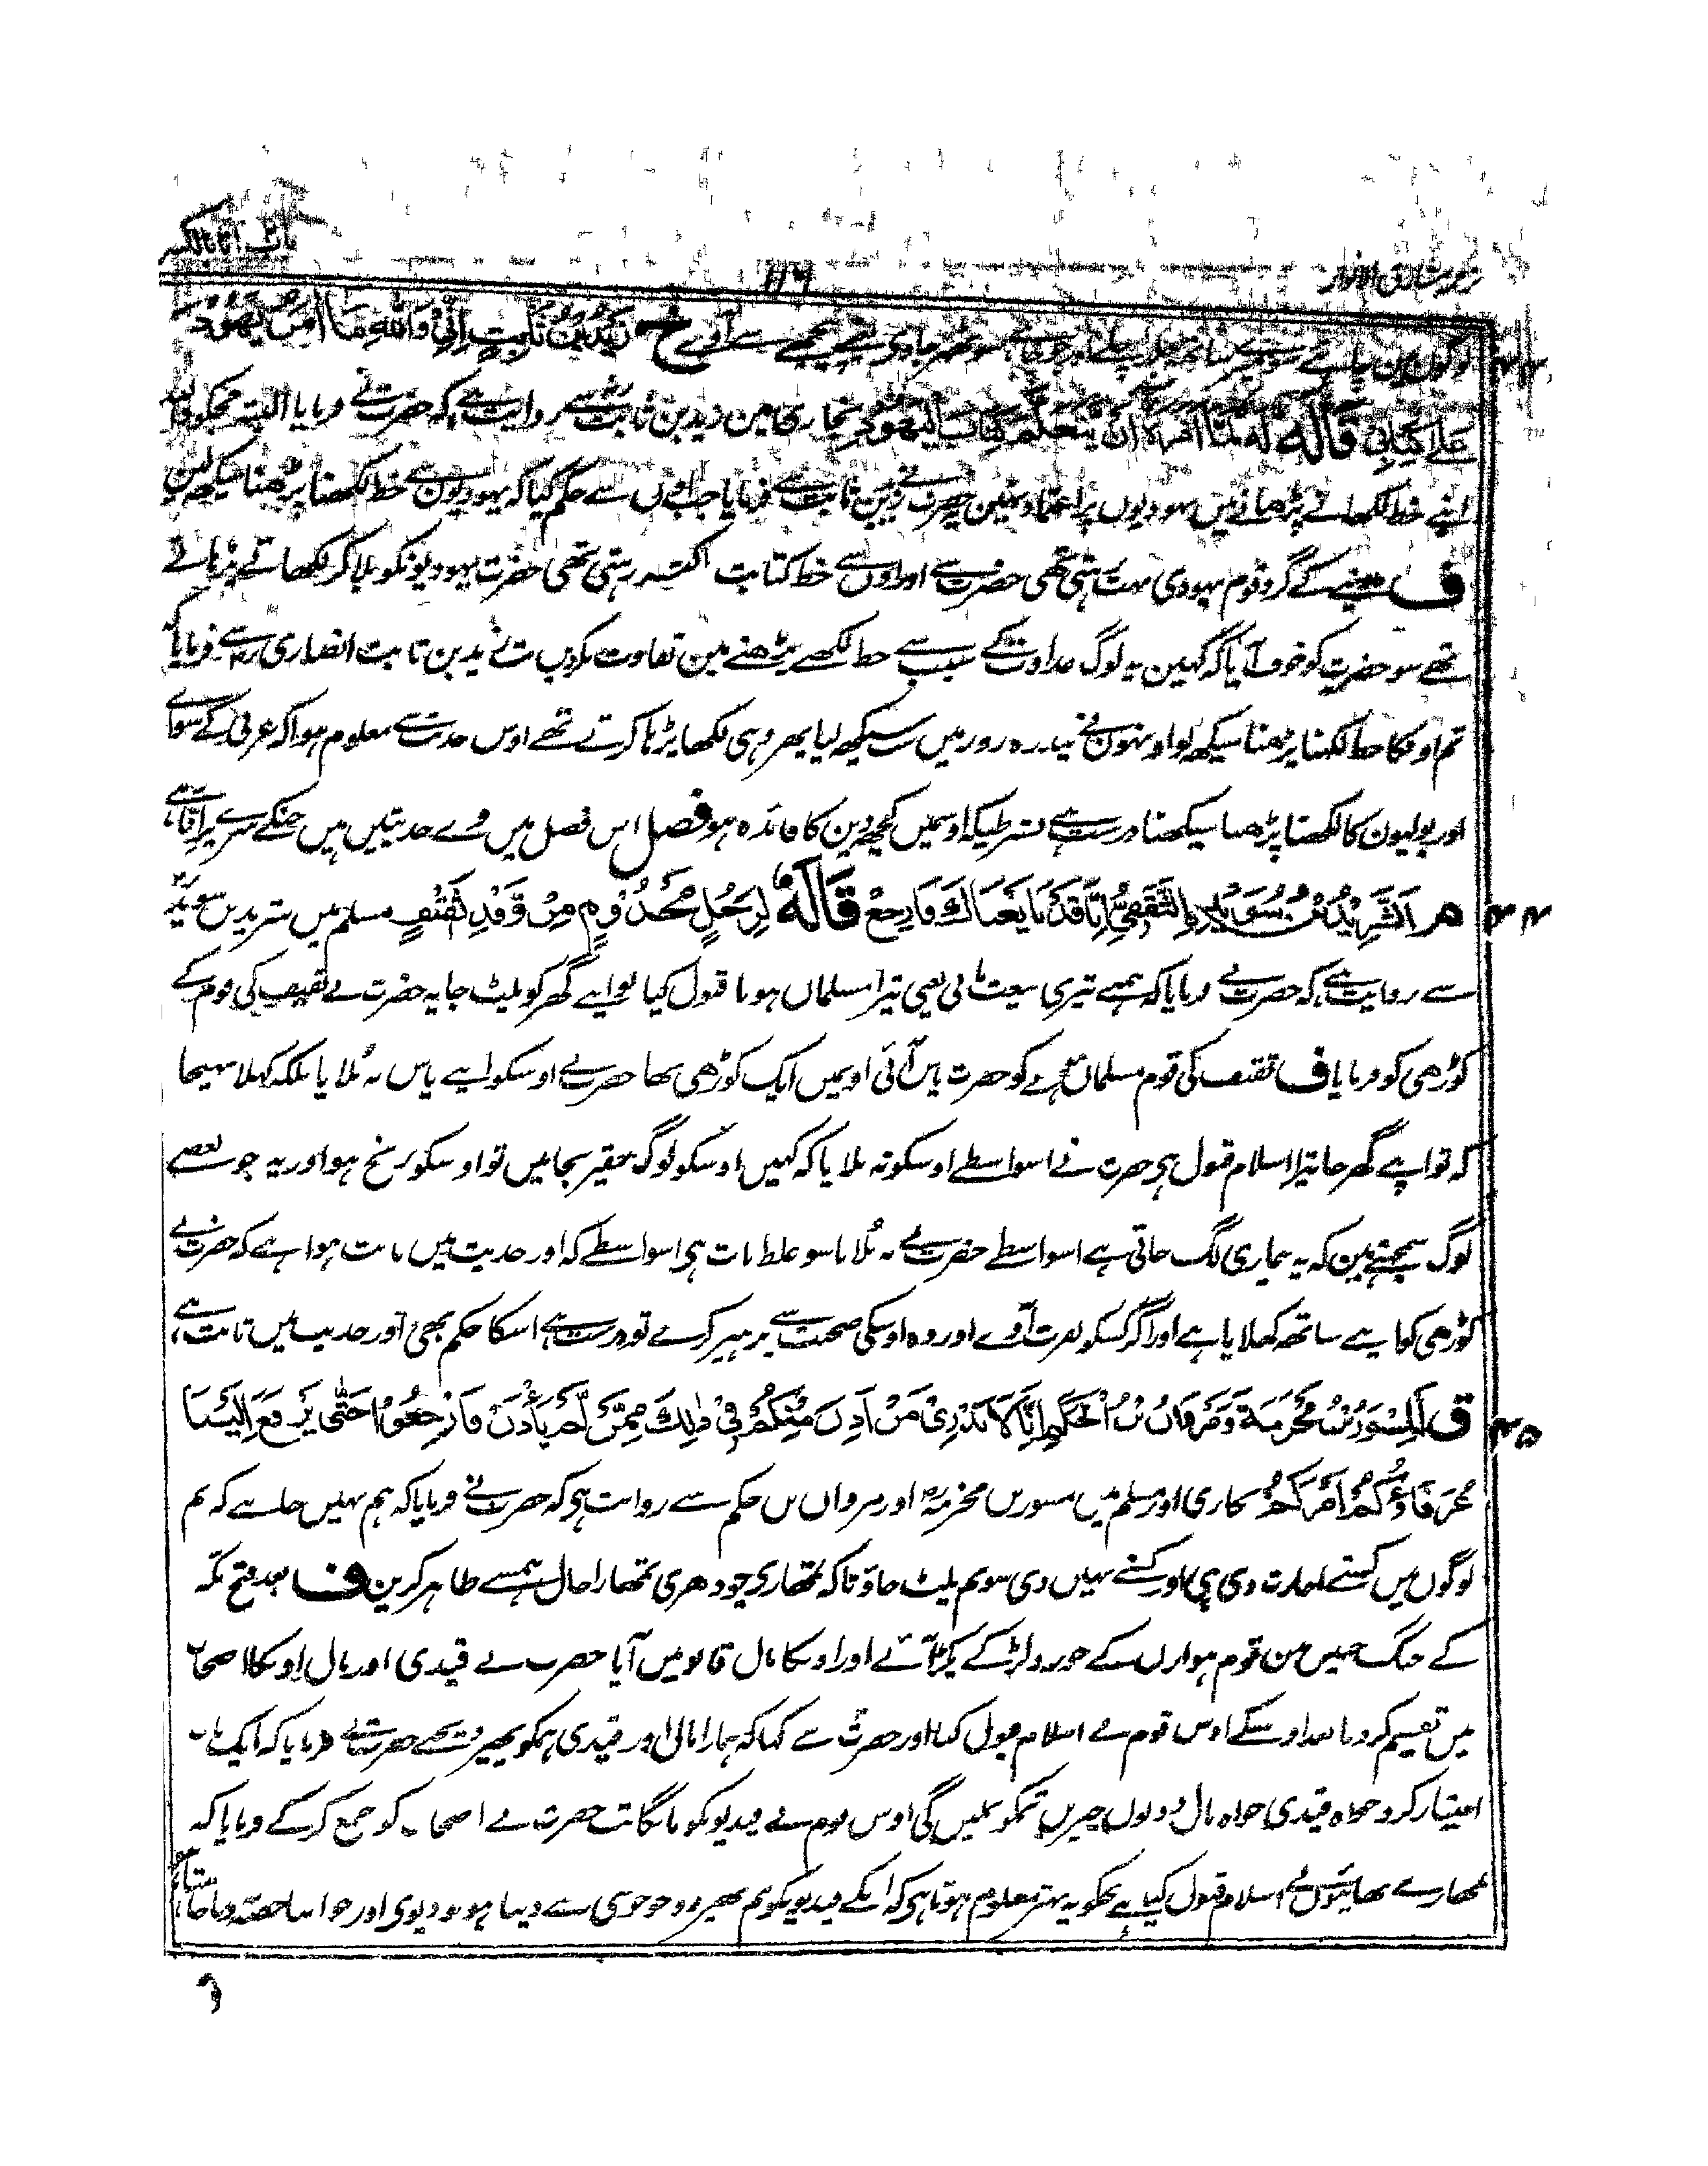 ۱۱۶
خ زَيْدُ بْنُ ثَابِتٍ اِنِّیْ وَاللّٰهِ مَا اٰمَنُ یَهُوْدَ
عَلٰی کِتَابِیْ قَالَهٗ لَهٗ لَمَّا اَمَرَهٗ اَنْ یَتَعَلَّمَ کِتَابَ الْیَهُوْدِ بخاری مین زید بن ثابت سے روایت ہے کہ حضرت نے فرمایا البتہ مجھکو
اپنے خط لکھانے پڑھانے میں یہودیوں پر اعتماد نہین حضرت نے زید بن ثابت سے فرمایا جب اوں سے حکم کیا کہ یہودیون سے خط لکھنا پڑھنا سیکھ لین
ف مدینے کے گرد قوم یہودی بہت رہتی تھی حضرت سے اور اون سے خط کتابت اکثر رہتی تھی حضرت یہودیونکو بلا کر لکھاتے پڑھاتے
تھے سو حضرت کو خوف آیا کہ کہین یہ لوگ عداوت کے سبب سے خط لکھنے پڑھنے مین تفاوت نکریں تب زید بن ثابت انصاری رض سے فرمایا کہ
تم اونکا خط لکھنا پڑھنا سیکھ لو اونہون نے پندرہ روز میں سب سیکھ لیا پھر وہی لکھا پڑہا کرتے تھے اوس حدیث سے معلوم ہوا کہ عربی کے سوائے
اور بولیون کا لکھنا پڑھنا سیکھنا درست ہے بشرطیکہ اوسمیں کچھ دین کا فائدہ ہو فصل اس فصل میں وے حدیثیں ہیں جنکے سرے پر اِنَّا ہے
۴۴ م اَلشَّرِیْدُ بْنُ سُوَیْدِ الثَّقَفِیُّ اِنَّا قَدْ بَایَعْنَاكَ فَارْجِعْ قَالَهٗ لِرَجُلٍ مَجْذُوْمٍ مِنْ وَّفْدِ ثَقِیْفٍ مسلم میں شرید بن سوید
سے روایت ہے کہ حضرت نے فرمایا کہ ہمنے تیری بیعت لی یعنی تیرا مسلمان ہونا قبول کیا تو اپنے گھر کو پلٹ جا یہ حضرت نے ثقیف کی قوم کے
کوڑھی کو فرمایا ف ثقیف کی قوم مسلمان ہونے کو حضرت پاس آئی اونمیں ایک کوڑھی تھا حضرت نے اوسکو اپنے پاس نہ بُلایا بلکہ کہلا بھیجا
کہ تو اپنے گھر جا تیرا اسلام قبول ہی حضرت نے اسواسطے اوسکو نہ بلایا کہ کہیں اوسکو لوگ حقیر نجانیں تو اوسکو رنج ہو اور یہ جو بعضے
لوگ سمجھتے ہین کہ یہ بیماری لگ جاتی ہے اسواسطے حضرت نے نہ بُلایا سو غلط بات ہی اسواسطے کہ اور حدیث میں ثابت ہوا ہے کہ حضرت نے
کوڑھی کو اپنے ساتھ کھلایا ہے اور اگر کسکو نفرت آوے اور وہ اوسکی صحبت سے پرہیز کرے تو درست ہے اسکا حکم بھی اور حدیث میں ثابت ہے
۴۵ ق اَلْمِسْوَرُ بْنُ مَخْرَمَةَ وَمَرْوَانُ بْنُ الْحَکَمِ اِنَّا لَا نَدْرِیْ مَنْ اَذِنَ مِنْکُمْ فِیْ ذٰلِكَ مِمَّنْ لَّمْ یَأْذَنْ فَارْجِعُوْا حَتّٰی یَرْفَعَ اِلَیْنَا
عُرَفَاؤُکُمْ اَمْرَکُمْ بخاری اور مسلم میں مسور بن مخرمہ رض اور مروان بن حکم سے روایت ہی کہ حضرت نے فرمایا کہ ہم نہیں جانتے کہ تم
لوگوں میں کسنے اجازت دی ہی اور کسنے نہیں دی سو تم پلٹ جاؤ تاکہ تمھاری چودھری تمھارا حال ہمسے ظاہر کرین ف بعد فتح مکہ
کے جنگ حنین مین قوم ہوازن کے جورو لڑکے پکڑ آئے اور اونکا مال قابو میں آیا حضرت نے قیدی اور مال اونکا اصحاب
میں تقسیم کر دیا بعد اوسکے اوس قوم نے اسلام قبول کیا اور حضرت سے کہا کہ ہمارا مال اور قیدی ہمکو پھیر دیجے حضرت نے فرمایا کہ ایک بات
اختیار کرو خواہ قیدی خواہ مال دونوں چیزیں تمکو نملیں گی اوس قوم نے قیدیونکو مانگا تب حضرت نے اصحاب کو جمع کر کے فرمایا کہ
تمھارے بھائیوں نے اسلام قبول کیا ہے مجھکو یہ بہتر معلوم ہوتا ہی کہ انکے قیدیونکو تم پھیر دو جو خوشی سے دیتا ہو وہ دیوی اور جو اپنا حصہ